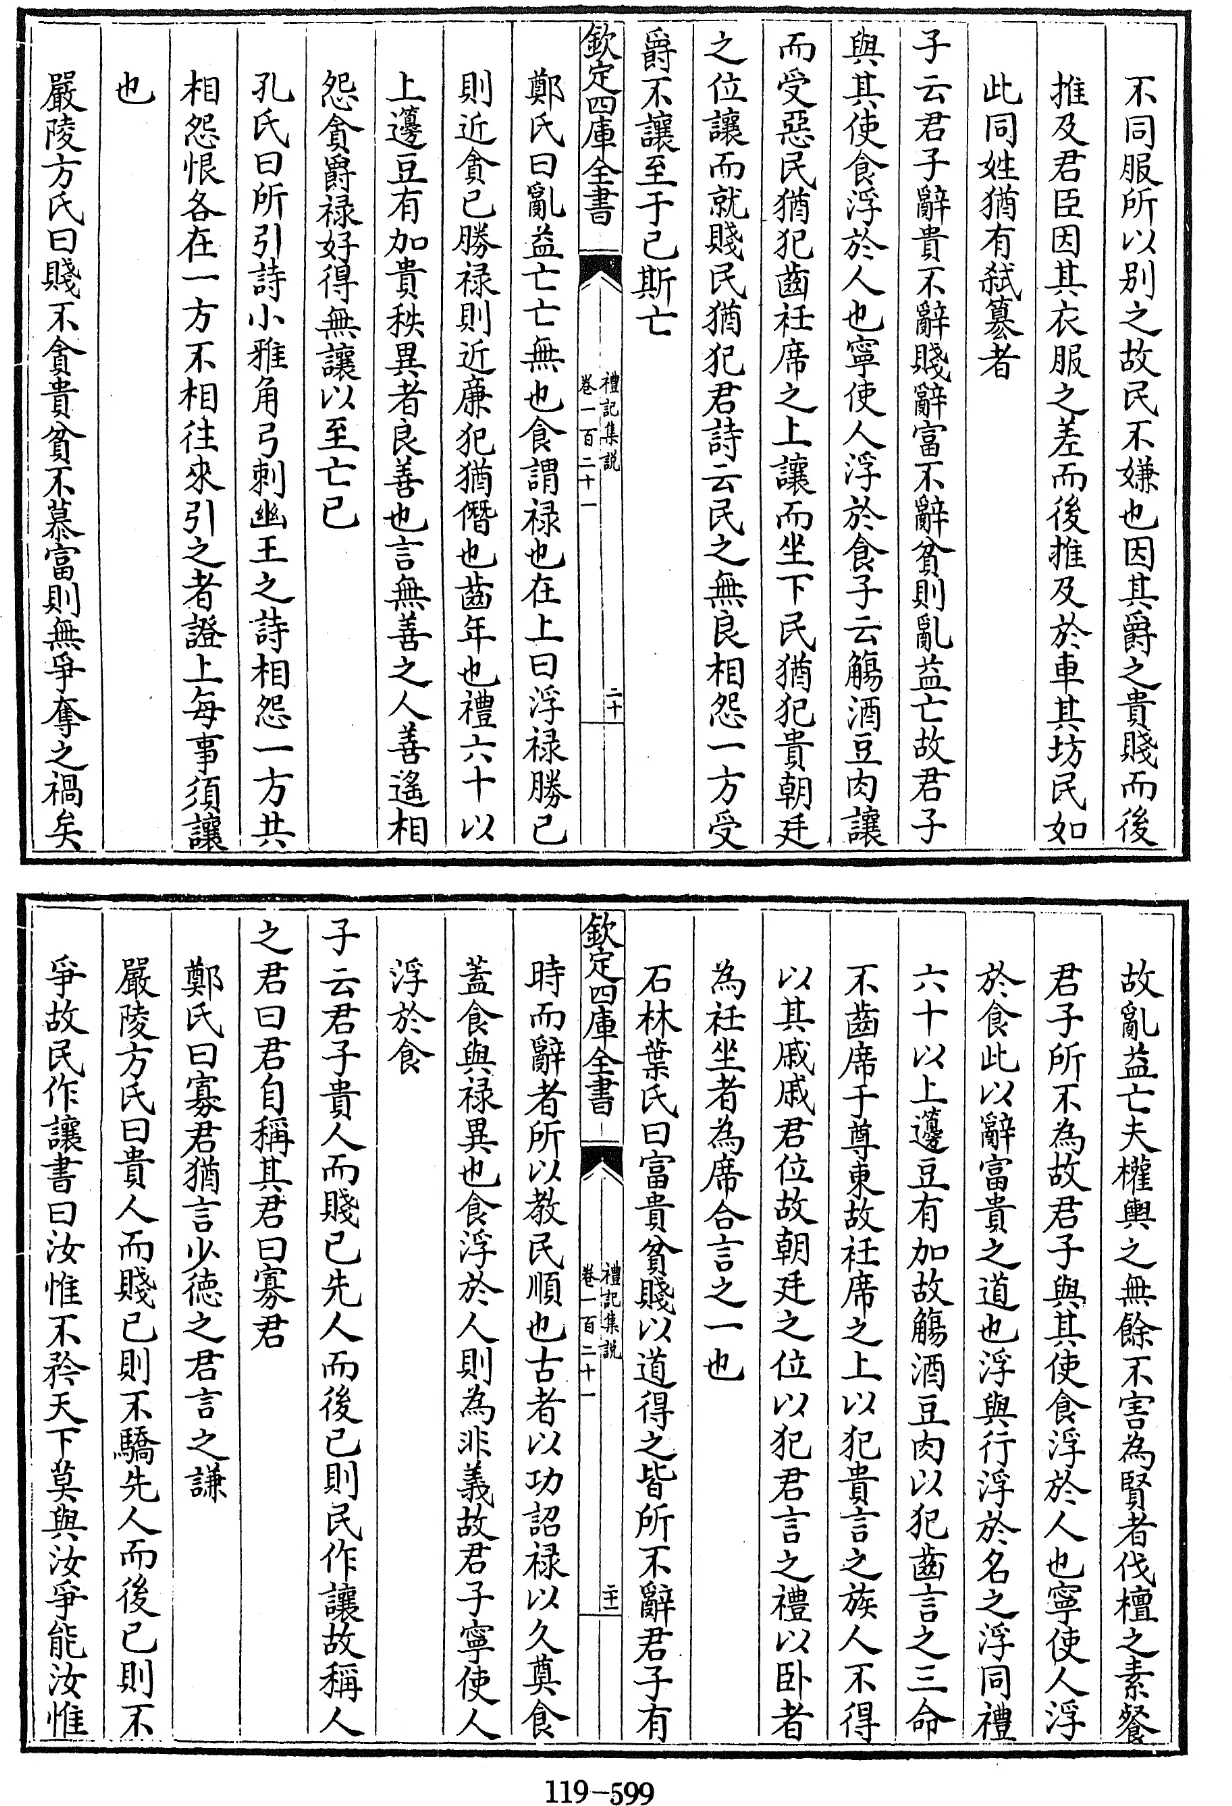 不同服所以别之故民不嫌也因其爵之貴賤而後
推及君臣因其衣服之差而後推及於車其坊民如
此同姓猶有弑篡者
子云君子辭貴不辭賤辭富不辭貧則亂益亡故君子
與其使食浮於人也寧使人浮於食子云觴酒豆肉讓
而受惡民猶犯齒衽席之上讓而坐下民猶犯貴朝廷
之位讓而就賤民猶犯君詩云民之無良相怨一方受
爵不讓至于己斯亡
欽定四庫全書
禮記集説
卷一百二十一
二十
鄭氏曰亂益亡亡無也食謂禄也在上曰浮禄勝己
則近貪己勝禄則近廉犯猶僭也齒年也禮六十以
上籩豆有加貴秩異者良善也言無善之人善遙相
怨貪爵禄好得無讓以至亡已
孔氏曰所引詩小雅角弓刺幽王之詩相怨一方共
相怨恨各在一方不相往來引之者證上每事須讓
也
嚴陵方氏曰賤不貪貴貧不慕富則無爭奪之禍矣
故亂益亡夫權輿之無餘不害為賢者伐檀之素餐
君子所不為故君子與其使食浮於人也寧使人浮
於食此以辭富貴之道也浮與行浮於名之浮同禮
六十以上籩豆有加故觴酒豆肉以犯齒言之三命
不齒席于尊東故衽席之上以犯貴言之族人不得
以其戚戚君位故朝廷之位以犯君言之禮以卧者
為衽坐者為席合言之一也
石林葉氏曰富貴貧賤以道得之皆所不辭君子有
欽定四庫全書
禮記集説
卷一百二十一
二十一
時而辭者所以教民順也古者以功詔禄以久奠食
蓋食與禄異也食浮於人則為非義故君子寧使人
浮於食
子云君子貴人而賤己先人而後己則民作讓故稱人
之君曰君自稱其君曰寡君
鄭氏曰寡君猶言少徳之君言之謙
嚴陵方氏曰貴人而賤己則不驕先人而後己則不
爭故民作讓書曰汝惟不矜天下莫與汝爭能汝惟
119-599